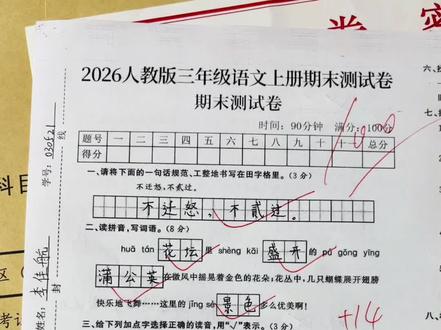 2026人教版三年级语文上册期末测试卷
期末测试卷
时间：90分钟 满分：100分
100
题号 一 二 三 四 五 六 七 八 九 十 十一 总分
得分
学号：030521
线
姓名：李佳航
封
一、请将下面的一句话规范、工整地书写在田字格里。（3分）
不迁怒，不贰过。
不迁怒，不贰过。
二、读拼音，写词语。（8分）
huā tán 花坛 里 shèng kāi 盛开 的 pú gōng yīng
蒲公英 在微风中摇晃着金色的花朵；花丛中，几只蝴蝶展开翅膀
快乐地飞舞……这里的 jǐng sè 景色 多么优美啊！
+14
三、给下列加点字选择正确的读音，用“√”表示。（3分）
科目